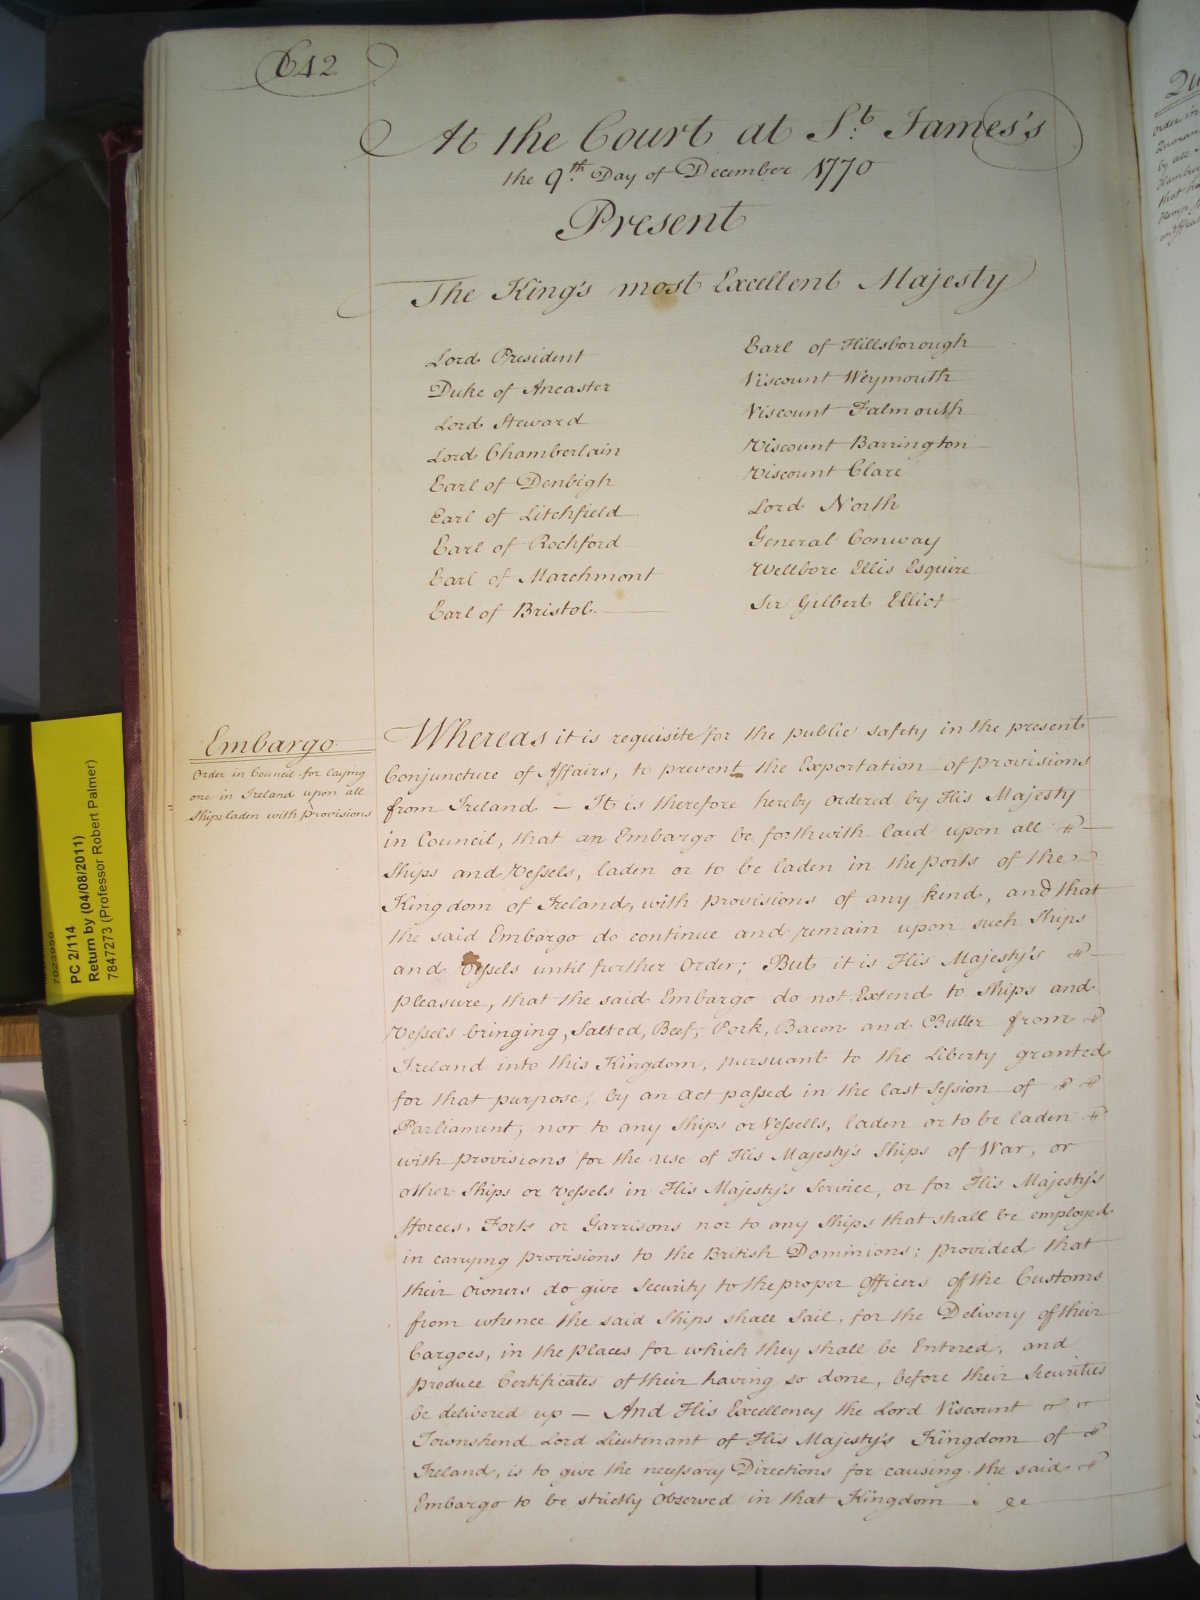 642
At the Court at St. James's
the 9th. Day of December 1770
Present
The King's most Excellent Majesty
Lord President
Duke of Ancaster
Lord Steward
Lord Chamberlain
Earl of Denbigh
Earl of Litchfield
Earl of Rochford
Earl of Marchmont
Earl of Bristol.
Earl of Hillsborough
Viscount Weymouth
Viscount Falmouth
Viscount Barrington
Viscount Clare
Lord North
General Conway
Wellbore Ellis Esquire
Sir Gilbert Elliot
Embargo
Order in Council for laying
one in Ireland upon all
Ships laden with Provisions
Whereas it is requisite for the public safety in the present
Conjuncture of Affairs, to prevent the Exportation of provisions
from Ireland — It is therefore hereby ordered by His Majesty
in Council, that an Embargo be forthwith laid upon all
Ships and Vessels, laden or to be laden in the ports of the
Kingdom of Ireland, with provisions of any kind, and that
the said Embargo do continue and remain upon such Ships
and Vessels until further Order; But it is His Majesty's
pleasure, that the said Embargo do not Extend to Ships and
Vessels bringing, Salted, Beef, Pork, Bacon and Butter from
Ireland into this Kingdom, pursuant to the Liberty granted
for that purpose, by an Act passed in the last Session of
Parliament, nor to any Ships or Vessells, laden or to be laden
with provisions for the use of His Majesty's Ships of War, or
other Ships or Vessels in His Majesty's Service, or for His Majesty's
fforces, Forts or Garrisons nor to any Ships that shall be employed
in carrying provisions to the British Dominions; provided that
their owners do give Security to the proper Officers of the Customs
from whence the said Ships shall Sail, for the Delivery of their
Cargoes, in the places for which they shall be Entered, and
produce Certificates of their having so done, before their Securities
be delivered up — And His Excellency the Lord Viscount
Townshend Lord Lieutenant of His Majesty's Kingdom of
Ireland, is to give the necessary Directions for causing the said
Embargo to be strictly observed in that Kingdom
PC 2/114
Return by (04/08/2011)
7847273 (Professor Robert Palmer)